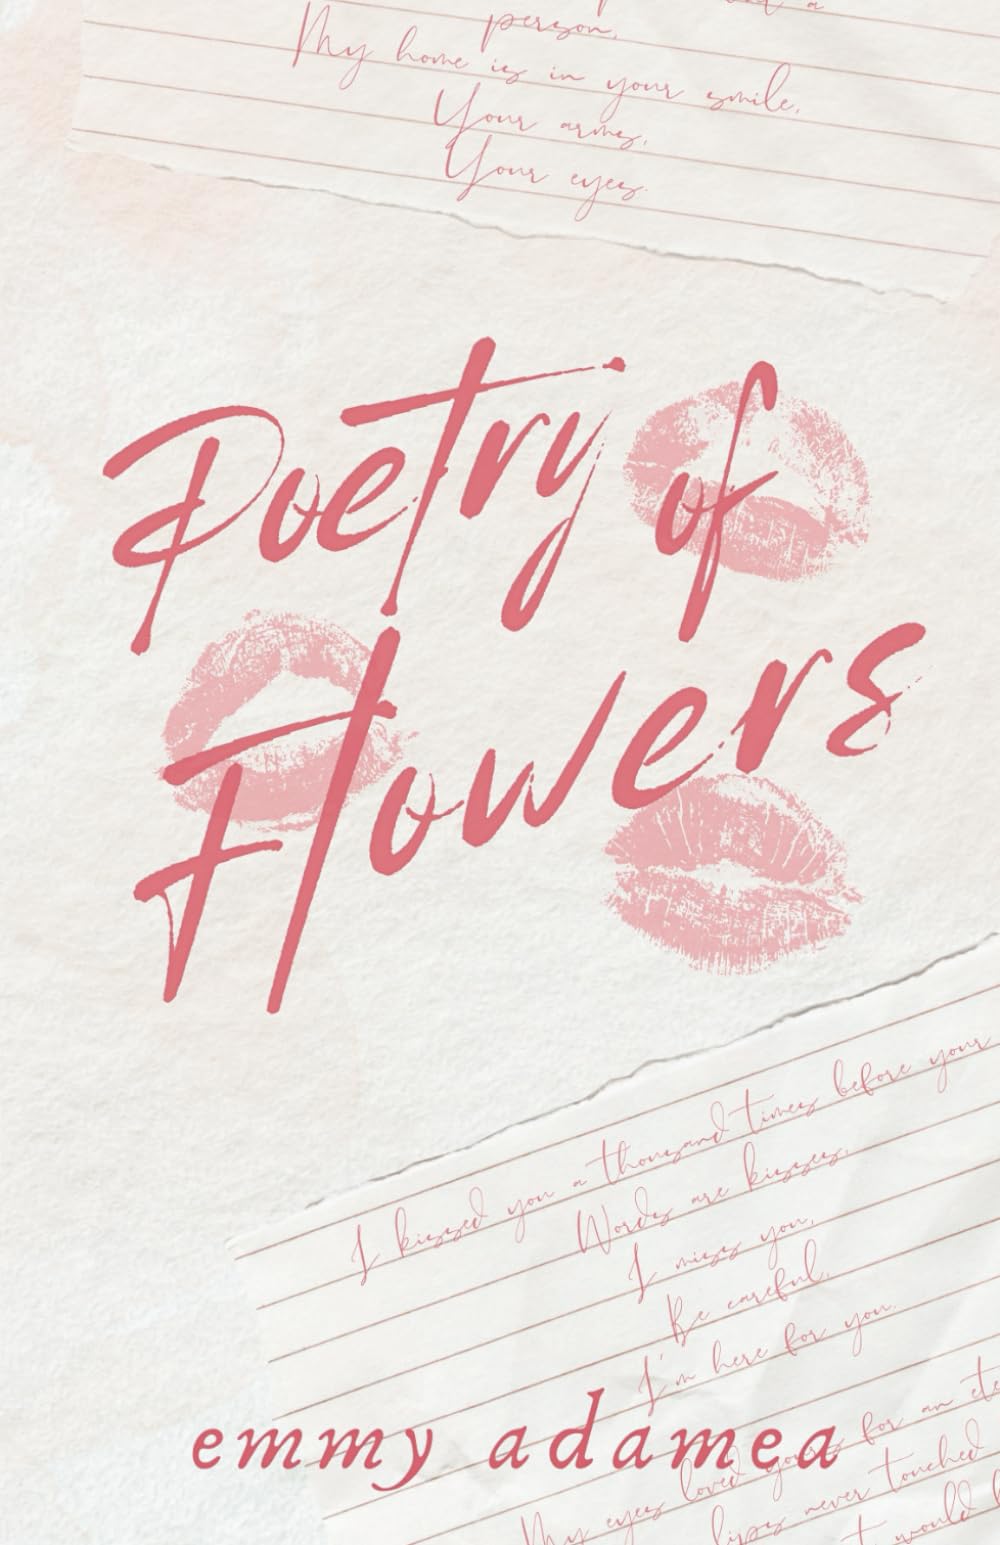 a
person,
My home is in your smile,
Your arms,
Your eyes.
Poetry of
Flowers
I kissed you a thousand times before your
Words are kisses,
I miss you,
Be careful,
I'm here for you.
emmy adamea
My eyes loved yours for an
lips never touched
would